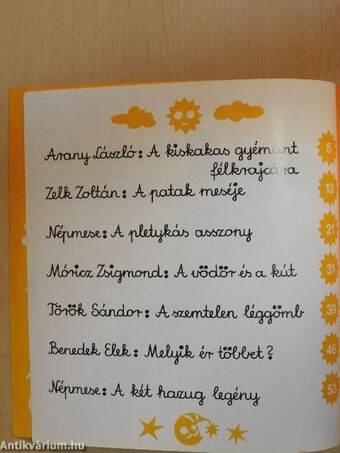 Arany László: A kiskakas gyémánt
félkrajcára
5
Zelk Zoltán: A patak meséje
13
Népmese: A pletykás asszony
21
Móricz Zsigmond: A vödör és a kút
31
Török Sándor: A szemtelen léggömb
39
Benedek Elek: Melyik ér többet?
46
Népmese: A két hazug legény
53
Antikvárium.hu